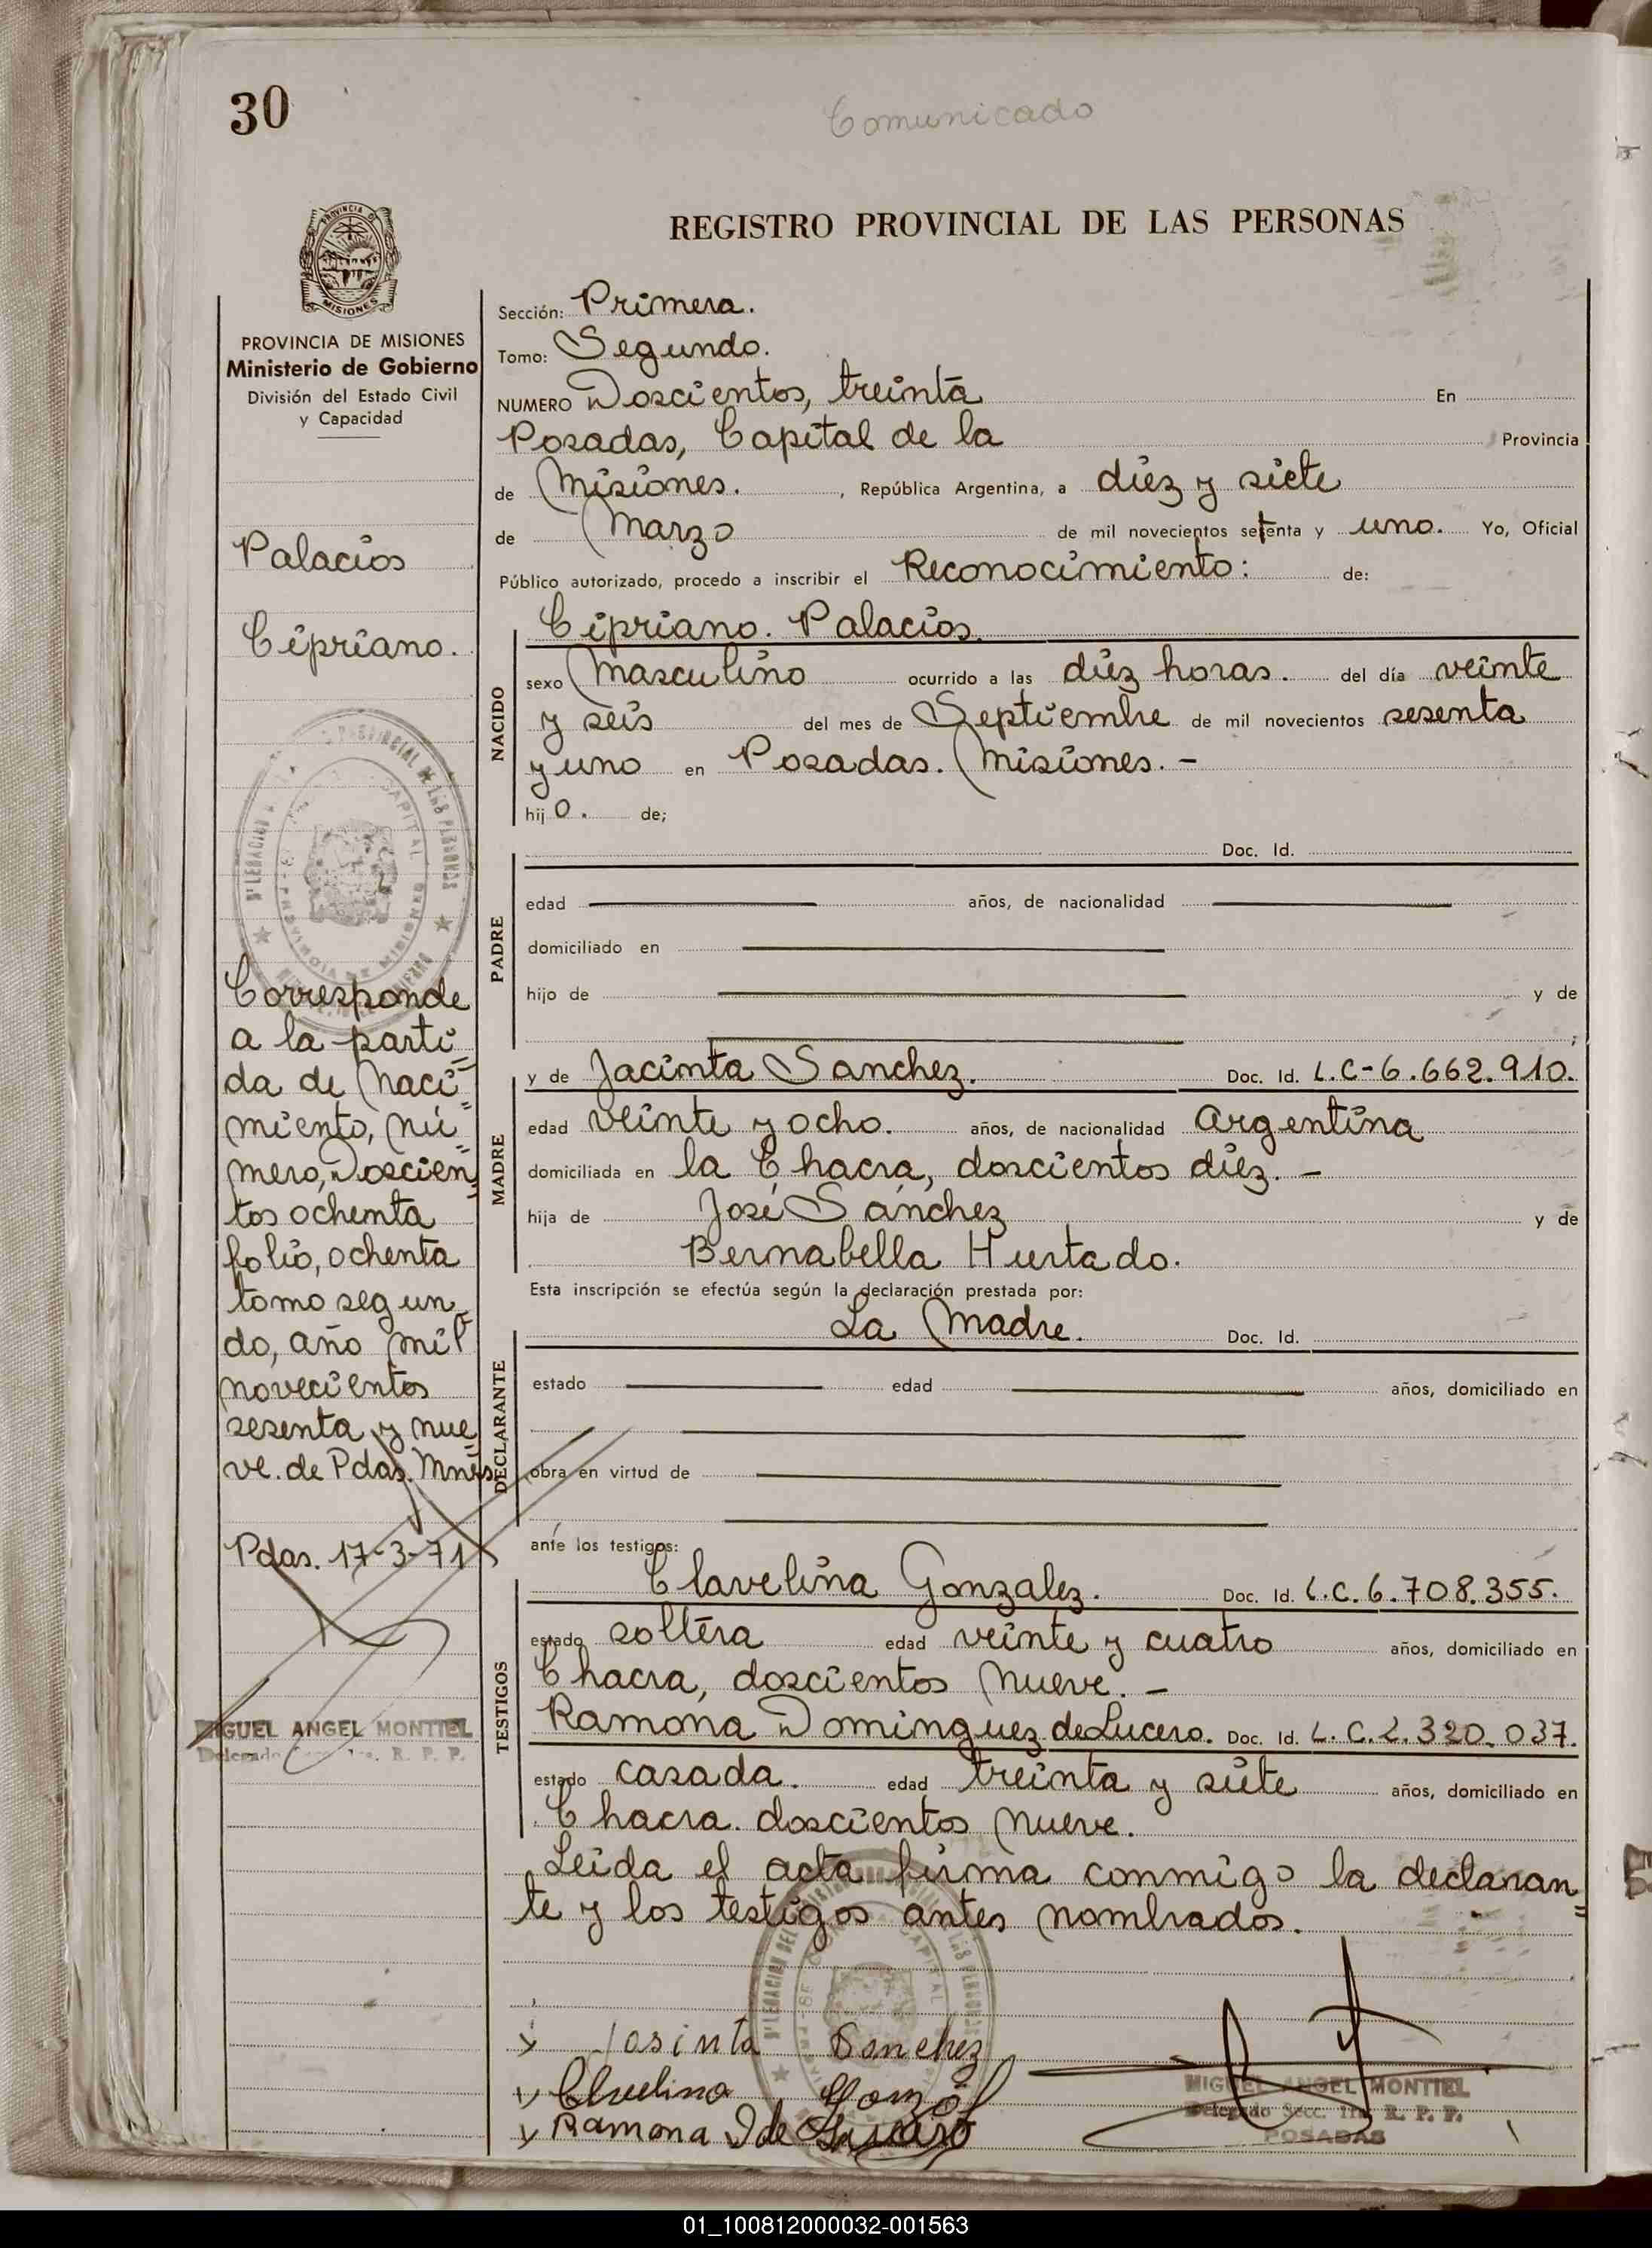 30
Comunicado
REGISTRO PROVINCIAL DE LAS PERSONAS
MISIONES
PROVINCIA DE MISIONES
Ministerio de Gobierno
División del Estado Civil
y Capacidad
Palacios
Cipriano.
Corresponde
a la parti=
da de Naci=
miento, Nú=
mero, Doscien=
tos ochenta
folio, ochenta
tomo segun=
do, año mil
novecientos
sesenta y nue=
ve. de Pdas. Mnes.
Pdas. 17-3-71
MIGUEL ANGEL MONTIEL
Delegado R. P. P.
Sección: Primera.
Tomo: Segundo.
NUMERO Doscientos, treinta En
Posadas, Capital de la Provincia
de Misiones. , República Argentina, a diez y siete
de Marzo de mil novecientos setenta y uno. Yo, Oficial
Público autorizado, procedo a inscribir el Reconocimiento: de:
NACIDO
Cipriano. Palacios.
sexo Masculino ocurrido a las diez horas. del día veinte
y seis del mes de Septiembre de mil novecientos sesenta
y uno en Posadas. Misiones. -
hij o. de;
PADRE
Doc. Id.
edad años, de nacionalidad
domiciliado en
hijo de y de
;
MADRE
y de Jacinta Sanchez. Doc. Id. L.C-6.662.910.
edad veinte y ocho. años, de nacionalidad Argentina
domiciliada en la Chacra, doscientos diez. -
hija de José Sánchez y de
Bernabella Hurtado.
Esta inscripción se efectúa según la declaración prestada por:
DECLARANTE
La Madre. Doc. Id.
estado edad años, domiciliado en
obra en virtud de
ante los testigos:
TESTIGOS
Clavelina Gonzalez. Doc. Id. L.C.6.708.355.
estado soltera edad veinte y cuatro años, domiciliado en
Chacra, doscientos Nueve. -
Ramona Dominguez de Lucero. Doc. Id. L.C.2.320.037.
estado casada. edad treinta y siete años, domiciliado en
Chacra. doscientos Nueve.
Leida el acta firma conmigo la declaran=
te y los testigos antes nombrados.
Josinta Sanchez
Gonzal
Ramona D de Lucero
MIGUEL ANGEL MONTIEL
Delegado Secc. 1ra. R. P. P.
POSADAS
01_100812000032-001563